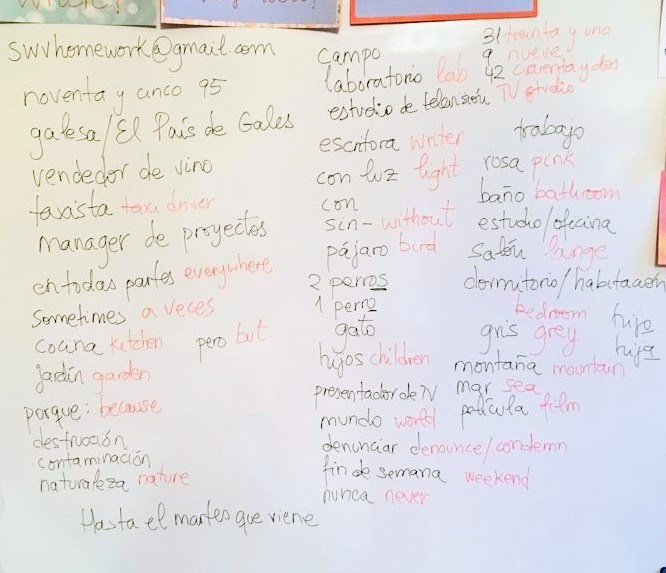 swvhomework@gmail.com
noventa y cinco 95
galesa/El País de Gales
vendedor de vino
taxista taxi driver
manager de proyectos
en todas partes everywhere
sometimes a veces
cocina kitchen pero but
jardín garden
porque: because
destrucción
contaminación
naturaleza nature
Hasta el martes que viene
campo
laboratorio lab
estudio de televisión TV studio
escritora writer
con luz light
con
sin- without
pájaro bird
2 perros
1 perro
gato
hijos children
presentador de TV
mundo world
denunciar denounce/condemn
fin de semana weekend
nunca never
31 treinta y uno
9 nueve
42 cuarenta y dos
trabajo
rosa pink
baño bathroom
estudio/oficina
salón lounge
dormitorio/habitación
bedroom
hijo
hija
gris grey
montaña mountain
mar sea
película film